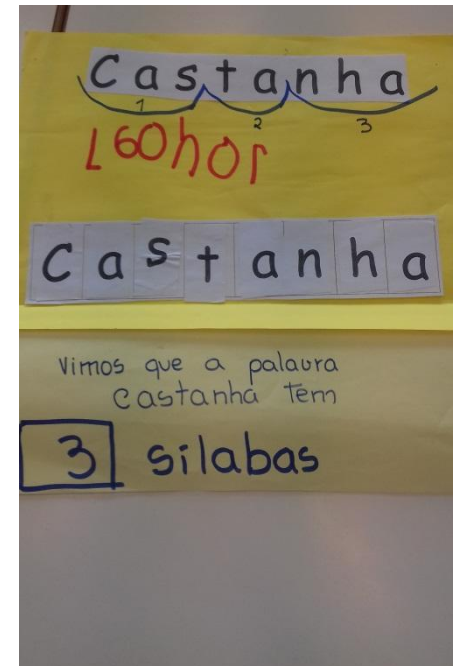 Castanha
1 2 3
Castanha
Vimos que a palavra
Castanha Tem
3 sílabas